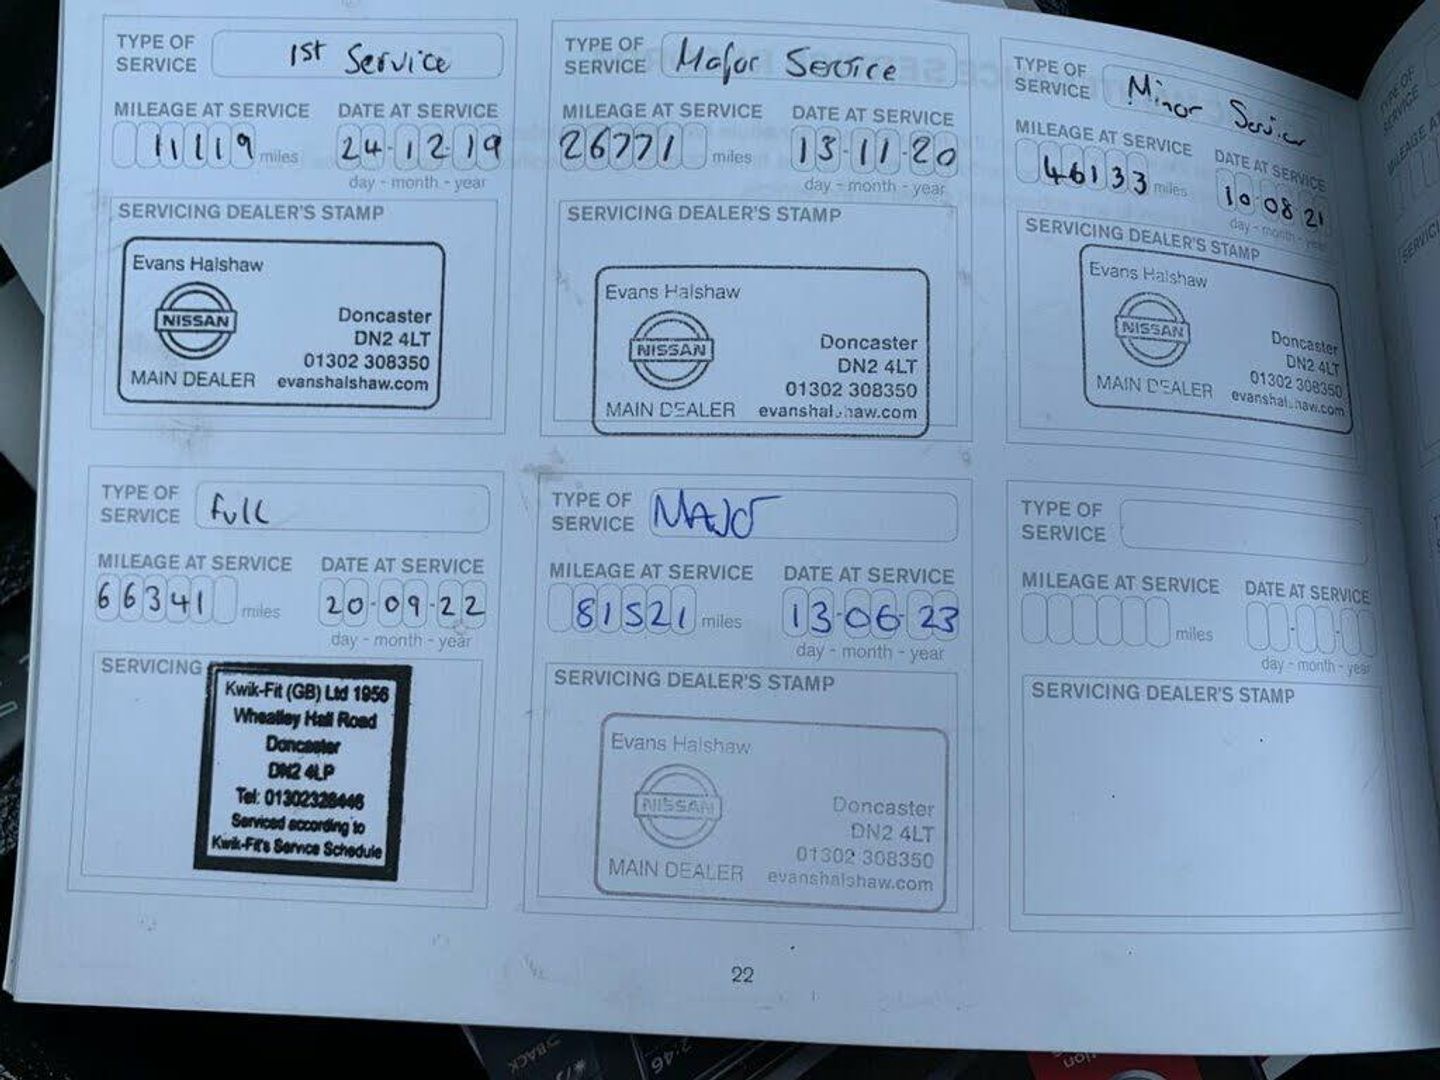 TYPE OF
SERVICE
1st Service
MILEAGE AT SERVICE
DATE AT SERVICE
11119 miles
24-12-19
day - month - year
SERVICING DEALER'S STAMP
Evans Halshaw
NISSAN
Doncaster
DN2 4LT
01302 308350
MAIN DEALER evanshalshaw.com
TYPE OF
SERVICE
Major Service
MILEAGE AT SERVICE
DATE AT SERVICE
26771 miles
13-11-20
day - month - year
SERVICING DEALER'S STAMP
Evans Halshaw
NISSAN
Doncaster
DN2 4LT
01302 308350
MAIN DEALER evanshalshaw.com
TYPE OF
SERVICE
Minor Service
MILEAGE AT SERVICE
DATE AT SERVICE
46133 miles
10-08-21
day - month - year
SERVICING DEALER'S STAMP
Evans Halshaw
NISSAN
Doncaster
DN2 4LT
01302 308350
MAIN DEALER evanshalshaw.com
TYPE OF
SERVICE
Full
MILEAGE AT SERVICE
DATE AT SERVICE
66341 miles
20-09-22
day - month - year
SERVICING
Kwik-Fit (GB) Ltd 1956
Wheatley Hall Road
Doncaster
DN2 4LP
Tel: 01302328446
Serviced according to
Kwik-Fit's Service Schedule
TYPE OF
SERVICE
MAJOr
MILEAGE AT SERVICE
DATE AT SERVICE
81521 miles
13-06-23
day - month - year
SERVICING DEALER'S STAMP
Evans Halshaw
NISSAN
Doncaster
DN2 4LT
01302 308350
MAIN DEALER evanshalshaw.com
TYPE OF
SERVICE
MILEAGE AT SERVICE
DATE AT SERVICE
miles
day - month - year
SERVICING DEALER'S STAMP
22
BACK
2:46